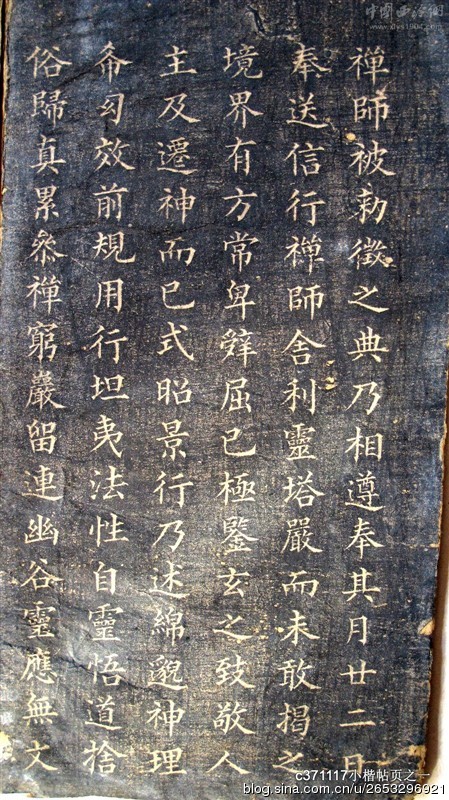 禪師被勅徵之典乃相遵奉其月廿二日
奉送信行禪師舍利靈塔嚴而未敢揭之
境界有方常卑辤屈已極鑒玄之致敬人
主及遷神而已式昭景行乃述綿邈神理
希幻效前規用行坦夷法性自靈悟道捨
俗歸真累叅禪窮巖留連幽谷靈應無文
中国西泠网
www.dvs1904.com
c371117小楷帖页之一
blog.sina.com.cn/u/2653296921